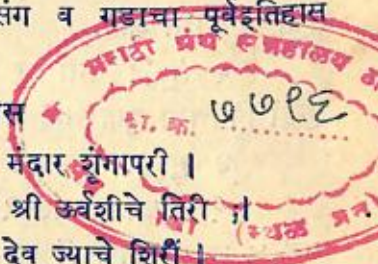 संग व गडाचा पूर्वइतिहास
मराठी ग्रंथ संग्रहालय
स
दा. क्र. ७७९६
मंदार शृंगापरी |
श्री ऊर्वशीचे तिरी ;|
(स्थळ प्रत)
देव ज्याचे शिरीं |